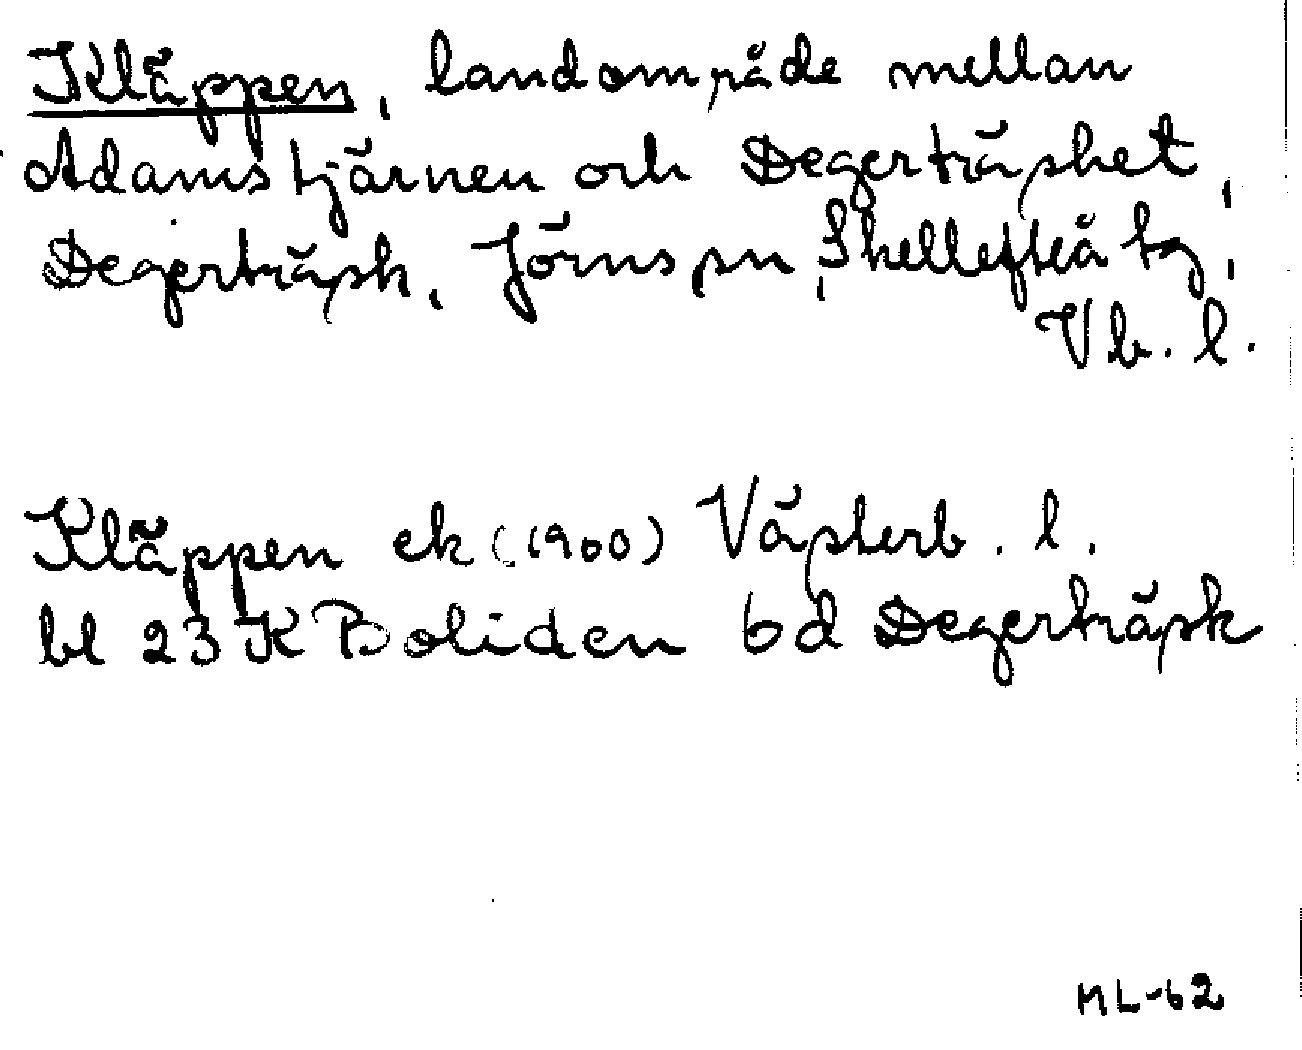 Kläppen, landområde mellan
Adamstjärnen och Degerträsket,
Degerträsk, Jörns sn, Skellefteå tg,
Vb. l.
Kläppen ek (1900) Västerb. l.
bl 23 K Boliden 6d Degerträsk
ML-62